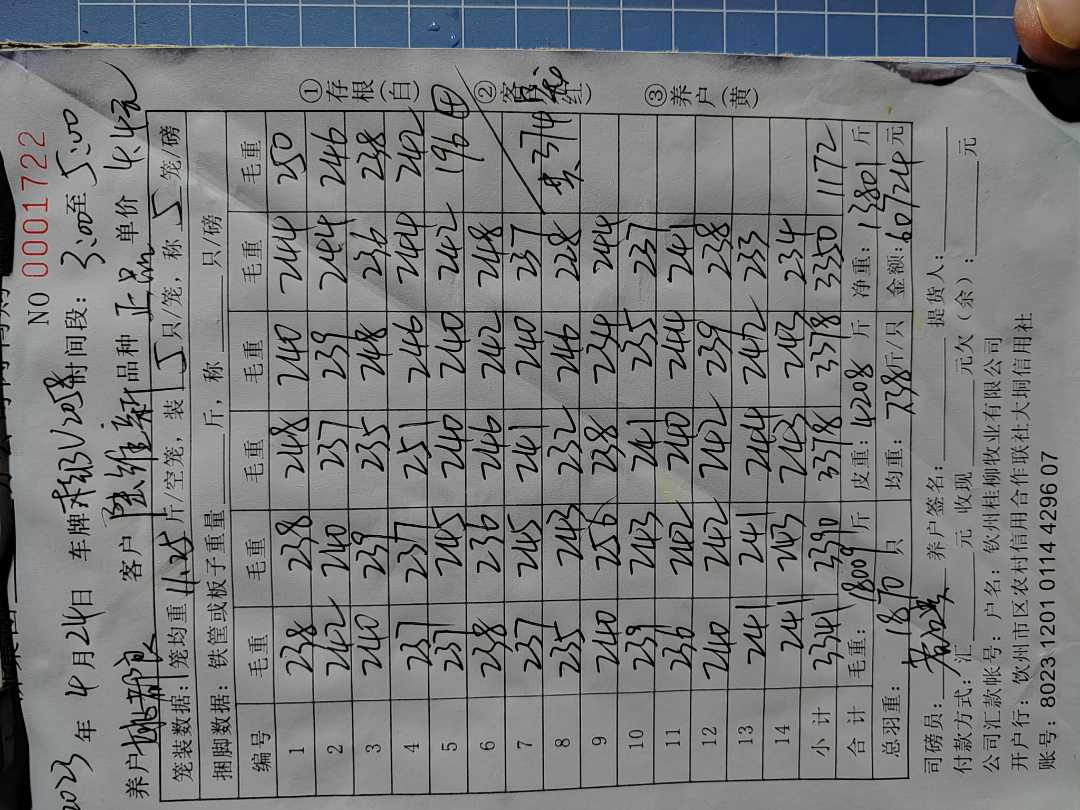 NO 0001722
2023 年 4 月 24 日 车牌 时间段: 3:00 至 5:00
养户 客户 品种 正品 单价 4.4元
笼装数据: 笼均重 11.25 斤/空笼, 装 5 只/笼, 称 5 笼/磅
捆脚数据: 铁筐或板子重量 斤, 称 只/磅
编号 毛重 毛重 毛重 毛重 毛重 毛重
1 238 238 248 240 244 250
2 242 240 237 239 244 246
3 240 239 235 248 236 238
4 237 237 251 246 244 242
5 237 245 240 240 242 196 ④
6 238 236 246 242 248
7 237 245 241 240 237
8 235 243 232 246 228 共374
9 240 256 238 234 244
10 239 243 241 235 237
11 236 242 240 244 241
12 240 242 242 239 238
13 241 241 244 242 233
14 241 243 243 243 234
小计 3341 3390 3378 3378 3350 1172
合计 毛重: 18009 斤 皮重: 4208 斤 净重: 13801 斤
总羽重: 1870 只 均重: 7.38 斤/只 金额: 60724 元
司磅员: 养户签名: 提货人:
付款方式: 汇 元 收现 元欠(余): 元
公司汇款帐号: 户名: 钦州桂柳牧业有限公司
开户行: 钦州市区农村信用合作联社大垌信用社
账号: 8023 1201 0114 4296 07
①存根(白)
②客户(红)
③养户(黄)